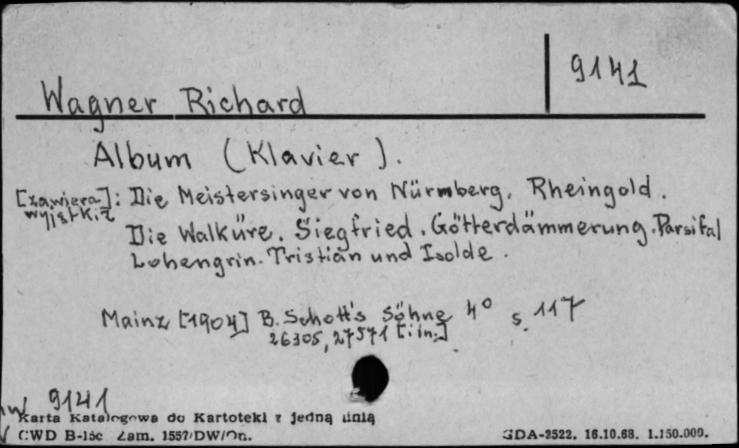 9141
Wagner Richard
Album (Klavier).
[zawiera]: Die Meistersinger von Nürmberg. Rheingold.
wyjątki z
Die Walküre. Siegfried. Götterdämmerung. Parsifal
Lohengrin. Tristian und Isolde.
Mainz [1904] B. Schott's Söhne 4° s. 117
26305, 27571 [i in.]
9141
Karta Katalogowa do Kartoteki z jedną linią
CWD B-15c Zam. 1557/DW/Dn. GDA-2522. 16.10.68. 1.150.000.